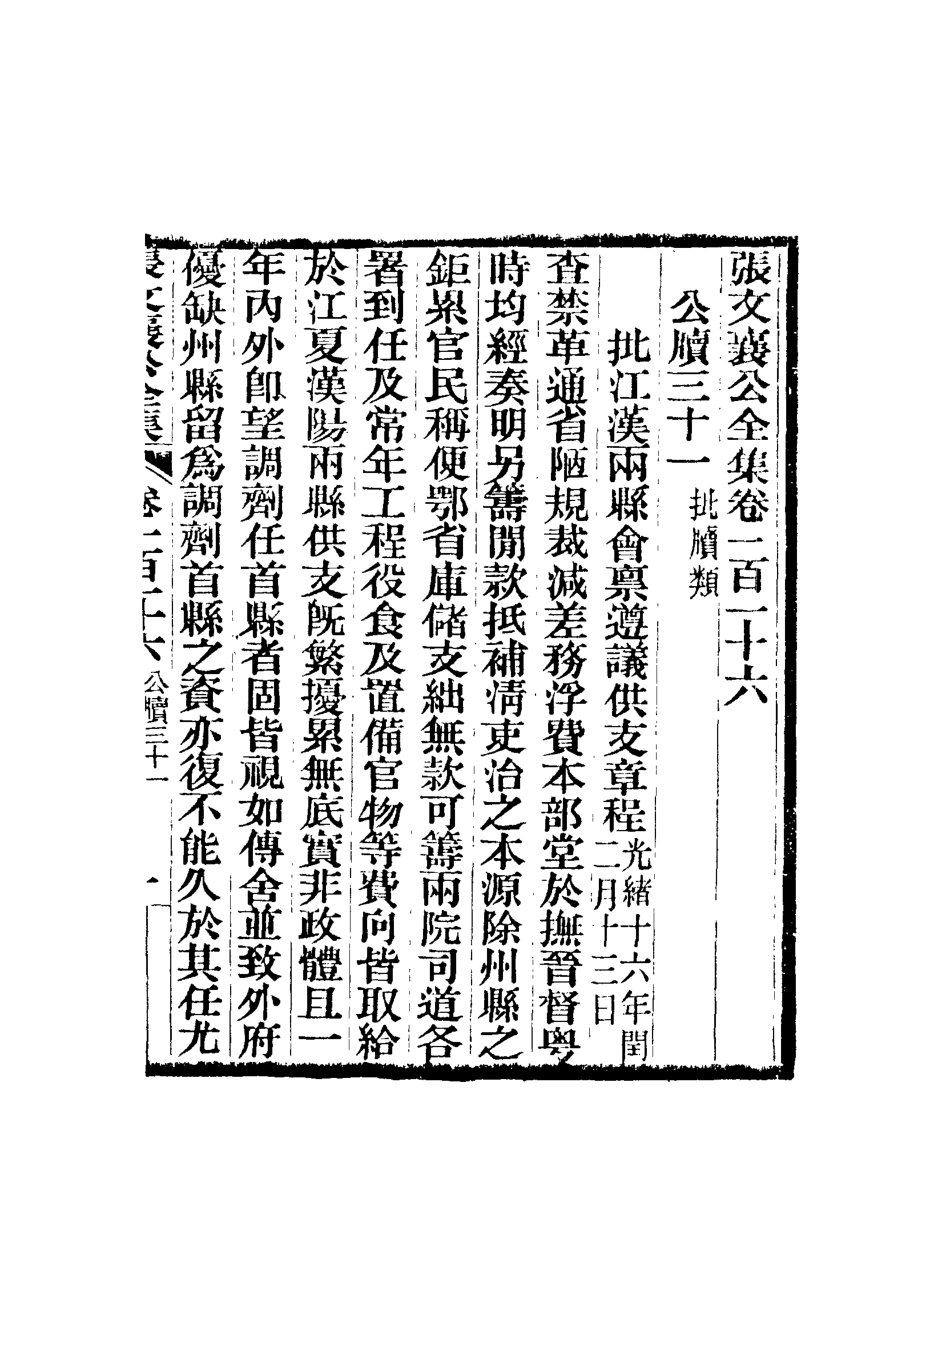 張文襄公全集卷一百一十六
公牘三十一 批牘類
批江漢兩縣會禀遵議供支章程 光緒十六年閏二月十三日
查禁革通省陋規裁減差務浮費本部堂於撫晉督粵
時均經奏明另籌閒款抵補淸吏治之本源除州縣之
鉅累官民稱便鄂省庫儲支絀無款可籌兩院司道各
署到任及常年工程役食及置備官物等費向皆取給
於江夏漢陽兩縣供支旣繁擾累無底實非政體且一
年內外卽望調劑任首縣者固皆視如傳舍並致外府
優缺州縣留爲調劑首縣之資亦復不能久於其任尤
張文襄公全集 卷一百一十六 公牘三十一 一